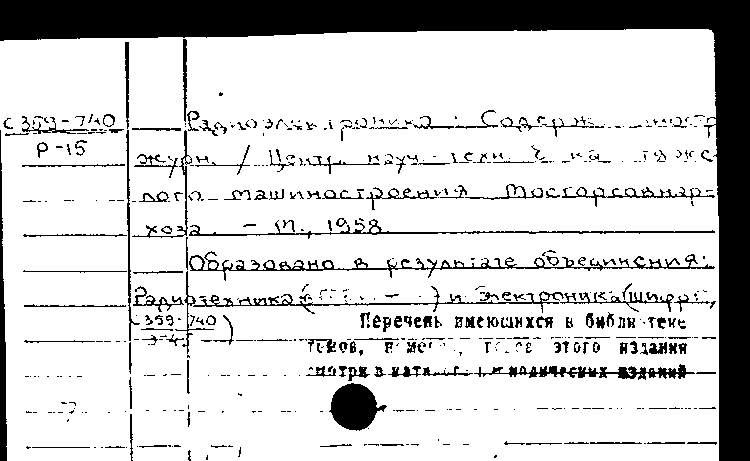 С359-740 Радиоэлектроника : Содерж. иностр
Р-15 журн. / Центр. науч.-техн. б-ка тяже-
лого машиностроения Мосгорсовнар-
хоза. – М., 1958
Образовано в результате объединения:
Радиотехника ( – ) и Электроника (шифр
359-740 )
Перечень имеющихся в библиотеке
томов, этого издания
смотри в изданий